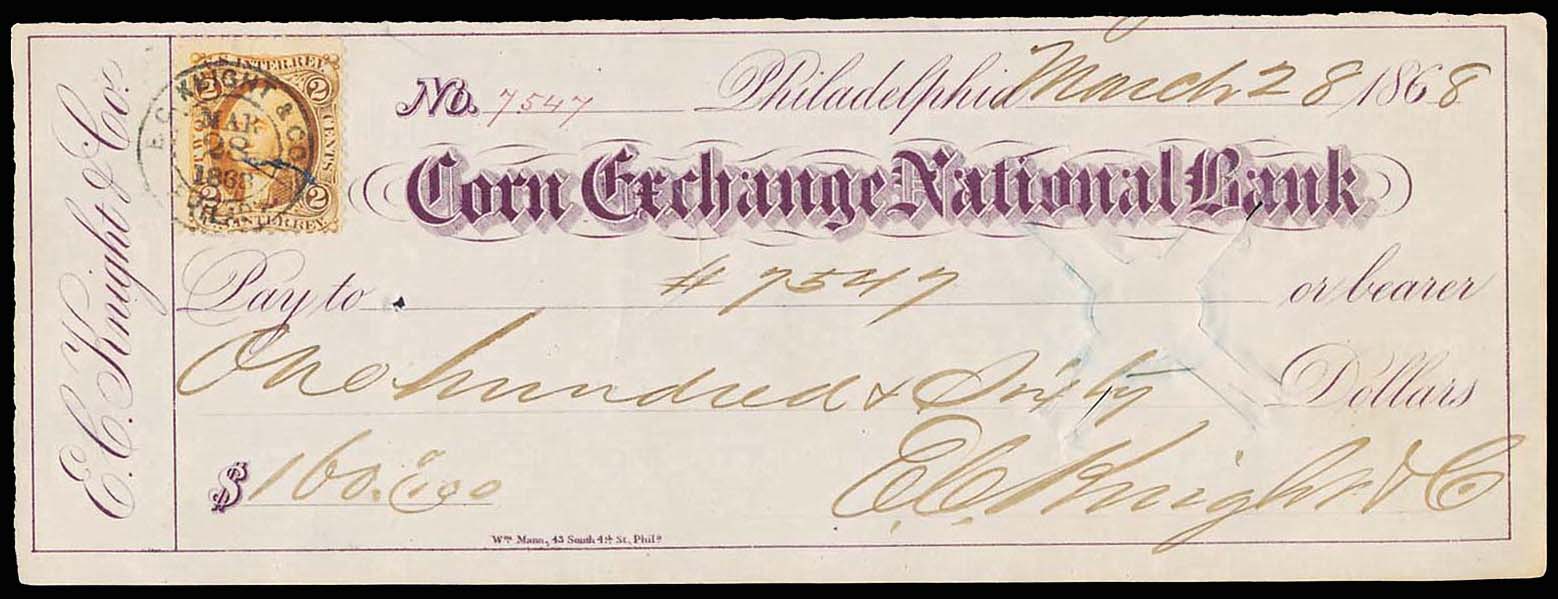 E. C. Knight & Co.
U.S. INTER. REV.
2 2
TWO CENTS
2 2
U.S. INTER. REV.
E. C. KNIGHT & CO.
MAR
28
1868
PHILADA
No. 7547 Philadelphia March 28 1868
Corn Exchange National Bank
Pay to # 7547 or bearer
One hundred & Sixty Dollars
$ 160.0/100
E. C. Knight & Co
Wm Mann, 43 South 4th St, Phila